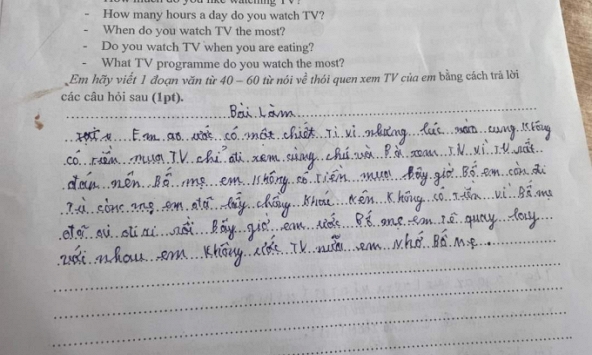 How much do you like watching TV?
- How many hours a day do you watch TV?
- When do you watch TV the most?
- Do you watch TV when you are eating?
- What TV programme do you watch the most?
Em hãy viết 1 đoạn văn từ 40 – 60 từ nói về thói quen xem TV của em bằng cách trả lời
các câu hỏi sau (1pt).
Bài Làm
Em ao ước có một chiếc Ti vi nhưng lúc nào cung không
có tiền mua TV chỉ đi xem cùng chú và Bà TV vì TV rất
đắt nên Bố mẹ em không có tiền mua Bây giờ Bố em còn đi
Tù còn mẹ em đã lấy chồng khác nên không có tiền vì Bố mẹ
đã rồi Bây giờ em ước Bố mẹ em quay lại
với nhau em không ước TV nữa em nhớ Bố Mẹ.